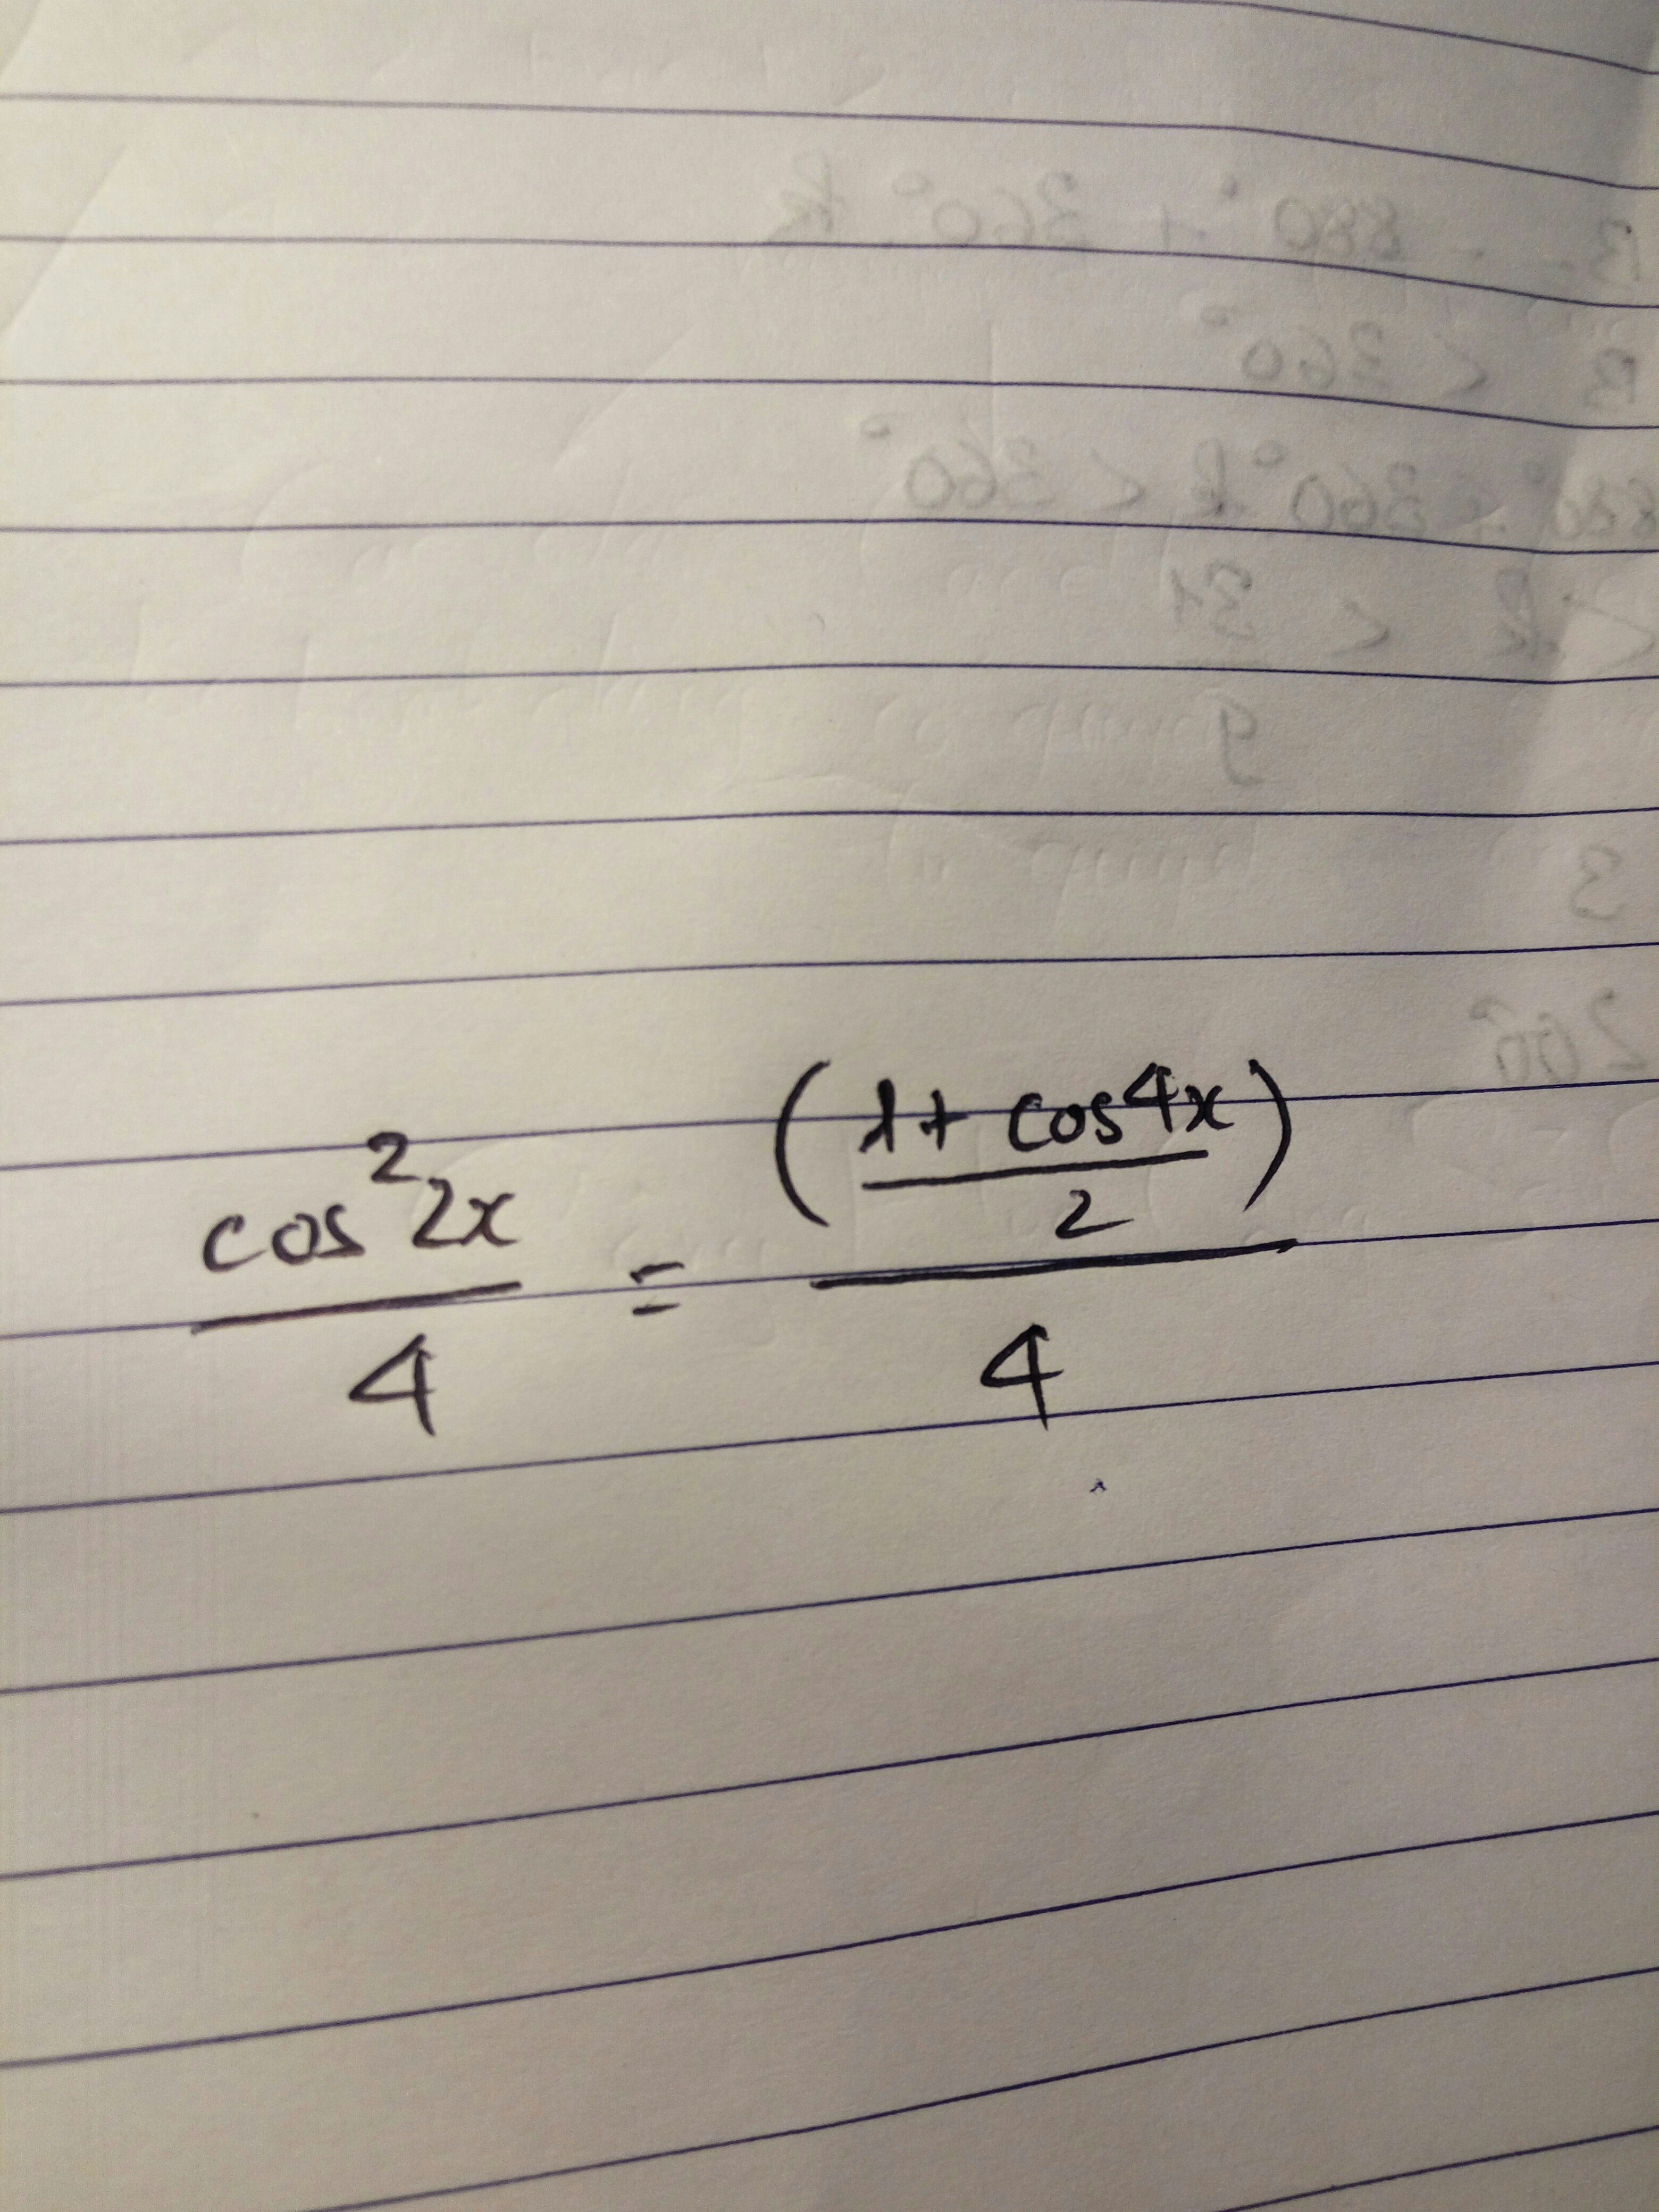 cos²2x/4 = ((1 + cos4x)/2)/4